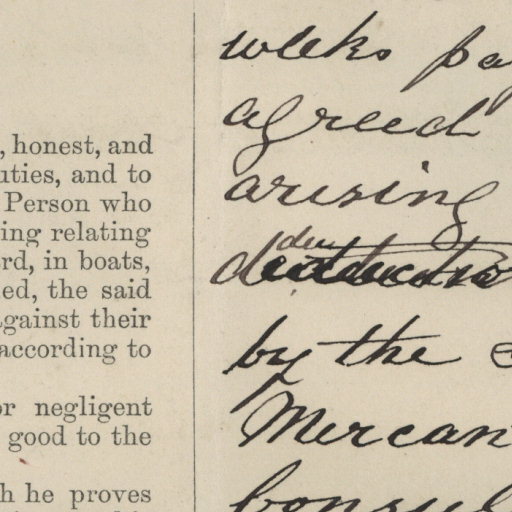 , honest, and
uties, and to
Person who
ing relating
rd, in boats,
ed, the said
against their
according to
or negligent
good to the
h he proves
weeks pay
agreed
arising
by the
Mercan
consul